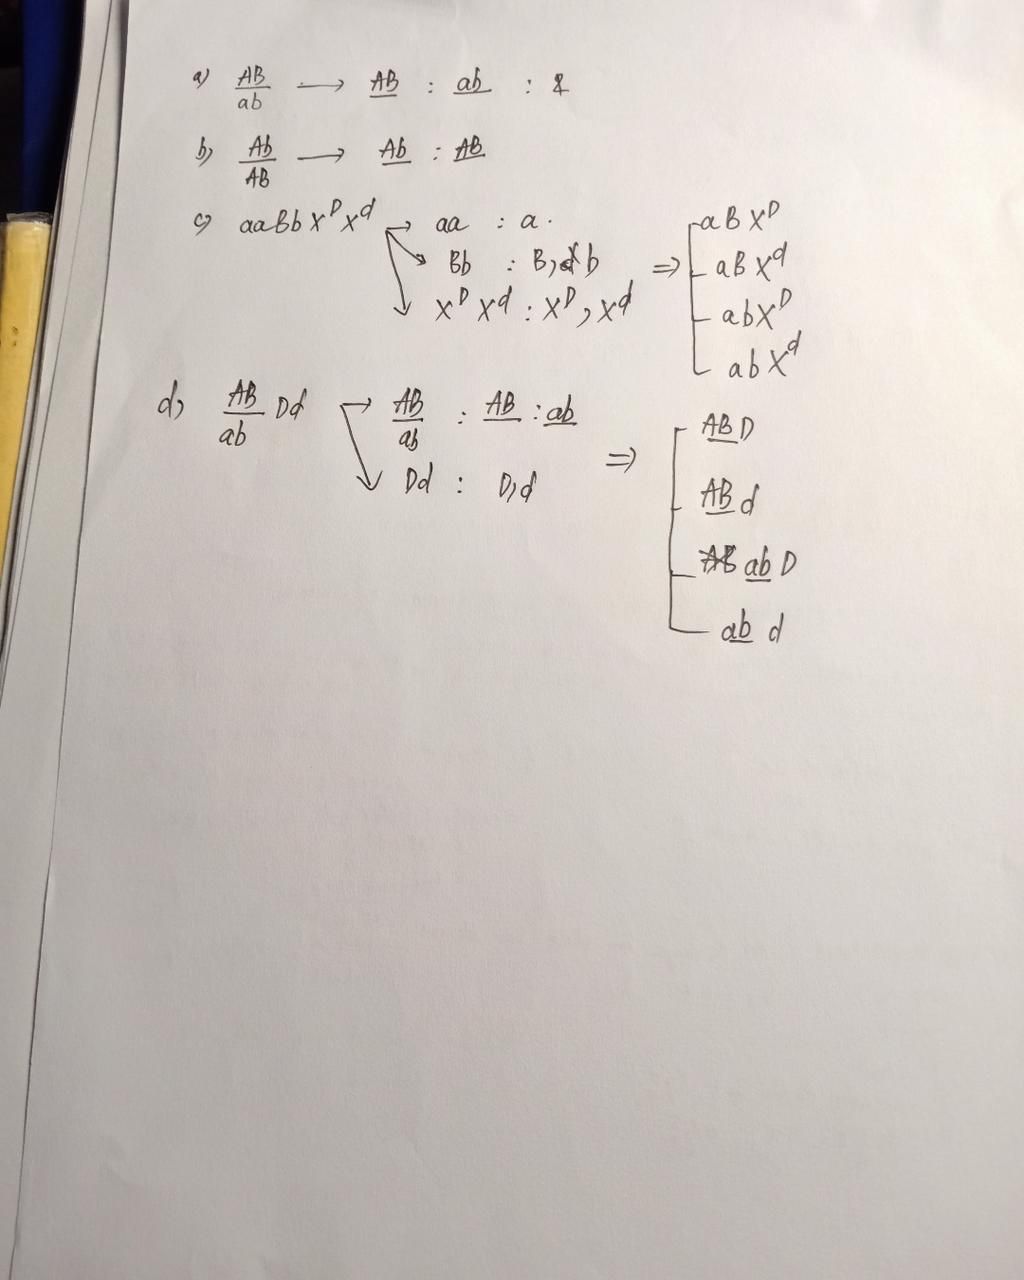 a) AB/ab → AB : ab :
b) Ab/AB → Ab : AB
c) aaBbX^DX^d → aa : a.
Bb : B, b
X^D X^d : X^D, X^d
⇒ aBX^D
aBX^d
abX^D
abX^d
d) AB/ab Dd → AB/ab : AB : ab
Dd : D, d
⇒ AB D
AB d
AB ab D
ab d